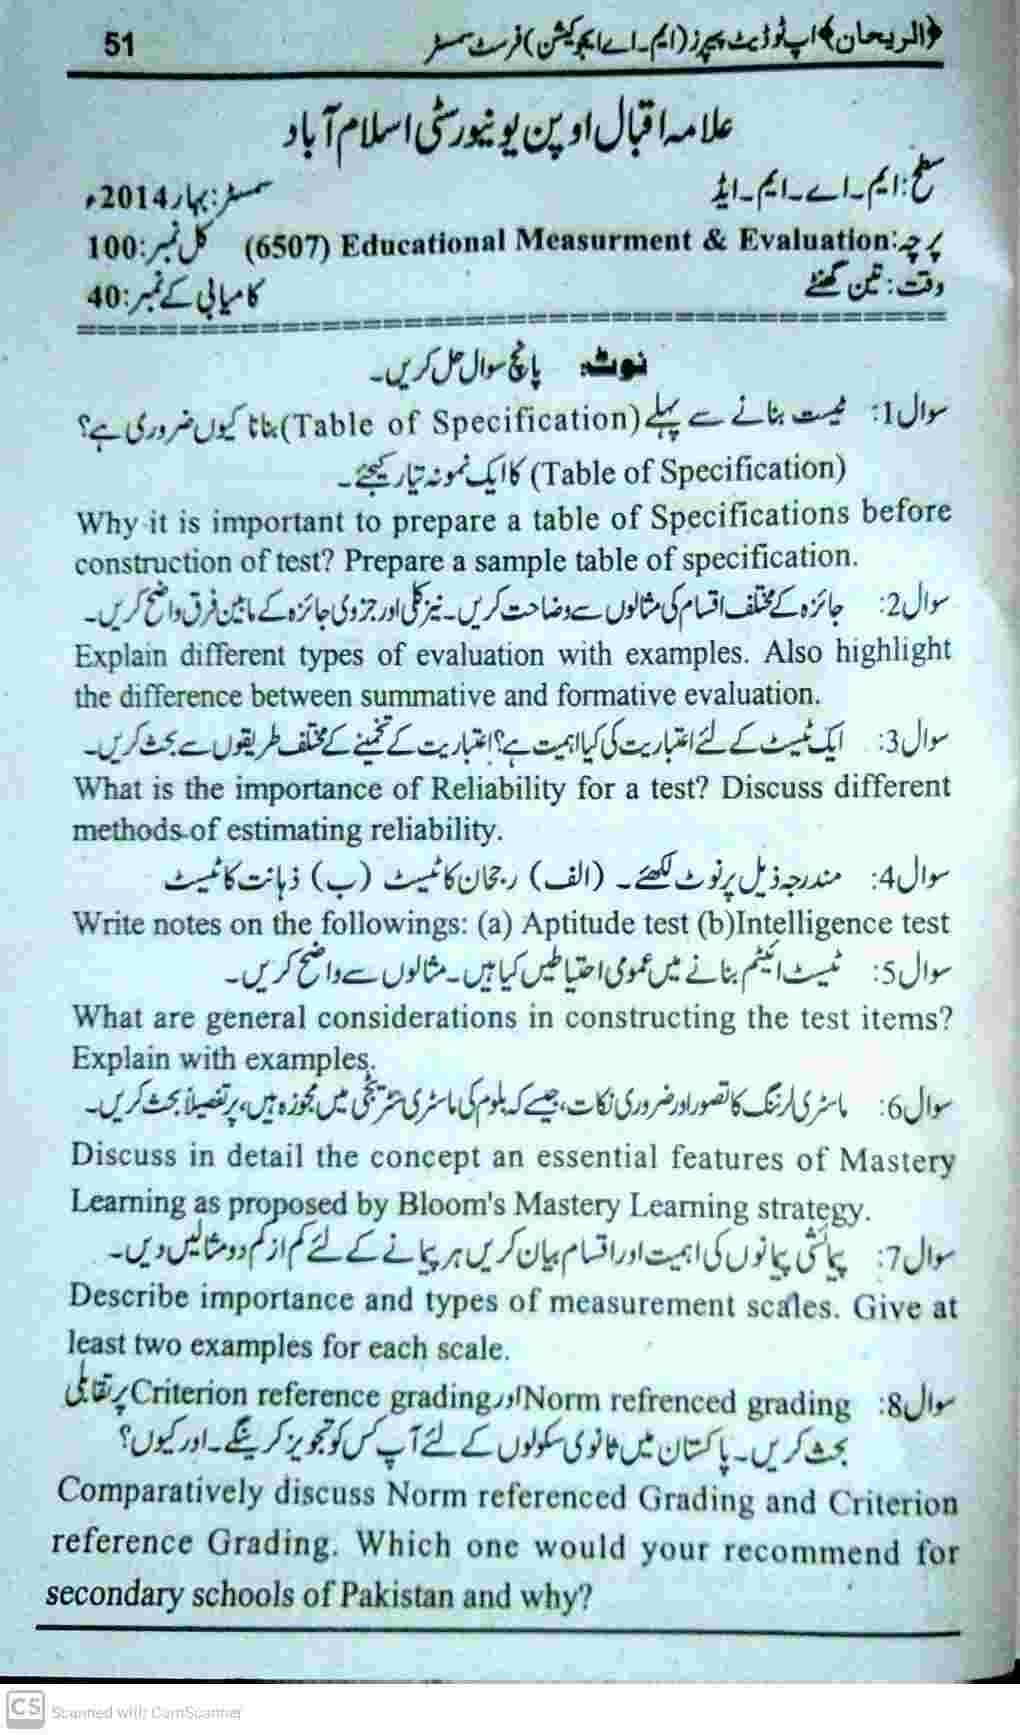 ﴿الریحان﴾ اپ ٹو ڈیٹ پیپرز (ایم۔اے ایجوکیشن) فرسٹ سمسٹر 51
علامہ اقبال اوپن یونیورسٹی اسلام آباد
سطح: ایم۔اے۔ایم۔ایڈ سمسٹر: بہار 2014ء
پرچہ: Educational Measurment & Evaluation (6507) کل نمبر: 100
وقت: تین گھنٹے کامیابی کے نمبر: 40
نوٹ: پانچ سوال حل کریں۔
سوال 1: ٹیسٹ بنانے سے پہلے (Table of Specification) بنانا کیوں ضروری ہے؟
(Table of Specification) کا ایک نمونہ تیار کیجئے۔
Why it is important to prepare a table of Specifications before
construction of test? Prepare a sample table of specification.
سوال 2: جائزہ کے مختلف اقسام کی مثالوں سے وضاحت کریں۔ نیز کلی اور جزوی جائزہ کے مابین فرق واضح کریں۔
Explain different types of evaluation with examples. Also highlight
the difference between summative and formative evaluation.
سوال 3: ایک ٹیسٹ کے لئے اعتباریت کی کیا اہمیت ہے؟ اعتباریت کے تخمینے کے مختلف طریقوں سے بحث کریں۔
What is the importance of Reliability for a test? Discuss different
methods of estimating reliability.
سوال 4: مندرجہ ذیل پر نوٹ لکھئے۔ (الف) رجحان کا ٹیسٹ (ب) ذہانت کا ٹیسٹ
Write notes on the followings: (a) Aptitude test (b)Intelligence test
سوال 5: ٹیسٹ آئیٹم بنانے میں عمومی احتیاطیں کیا ہیں۔ مثالوں سے واضح کریں۔
What are general considerations in constructing the test items?
Explain with examples.
سوال 6: ماسٹری لرننگ کا تصور اور ضروری نکات، جیسے کہ بلوم کی ماسٹری سٹریٹجی میں مجوزہ ہیں، پر تفصیلاً بحث کریں۔
Discuss in detail the concept an essential features of Mastery
Learning as proposed by Bloom's Mastery Learning strategy.
سوال 7: پیمائشی پیمانوں کی اہمیت اور اقسام بیان کریں ہر پیمانے کے لئے کم از کم دو مثالیں دیں۔
Describe importance and types of measurement scales. Give at
least two examples for each scale.
سوال 8: Norm refrenced grading اور Criterion reference grading پر تقابلی
بحث کریں۔ پاکستان میں ثانوی سکولوں کے لئے آپ کس کو تجویز کرینگے۔ اور کیوں؟
Comparatively discuss Norm referenced Grading and Criterion
reference Grading. Which one would your recommend for
secondary schools of Pakistan and why?
CS Scanned with CamScanner